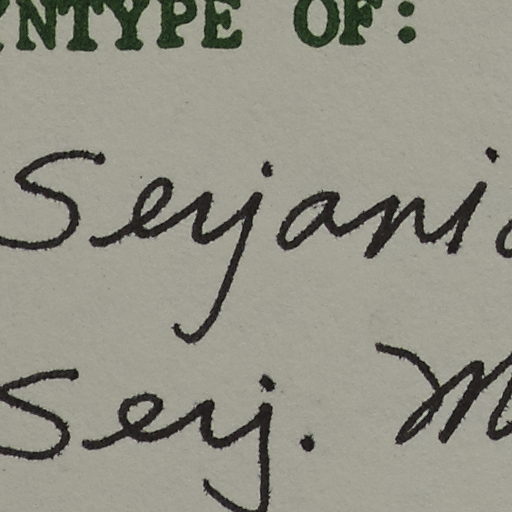 YNTYPE OF:
Serjania
Serj. M